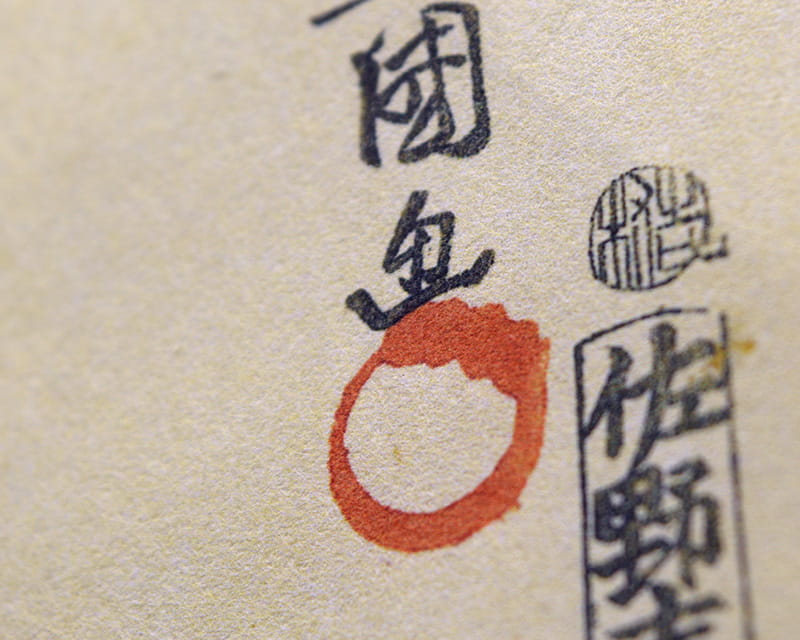 極
佐野
國画